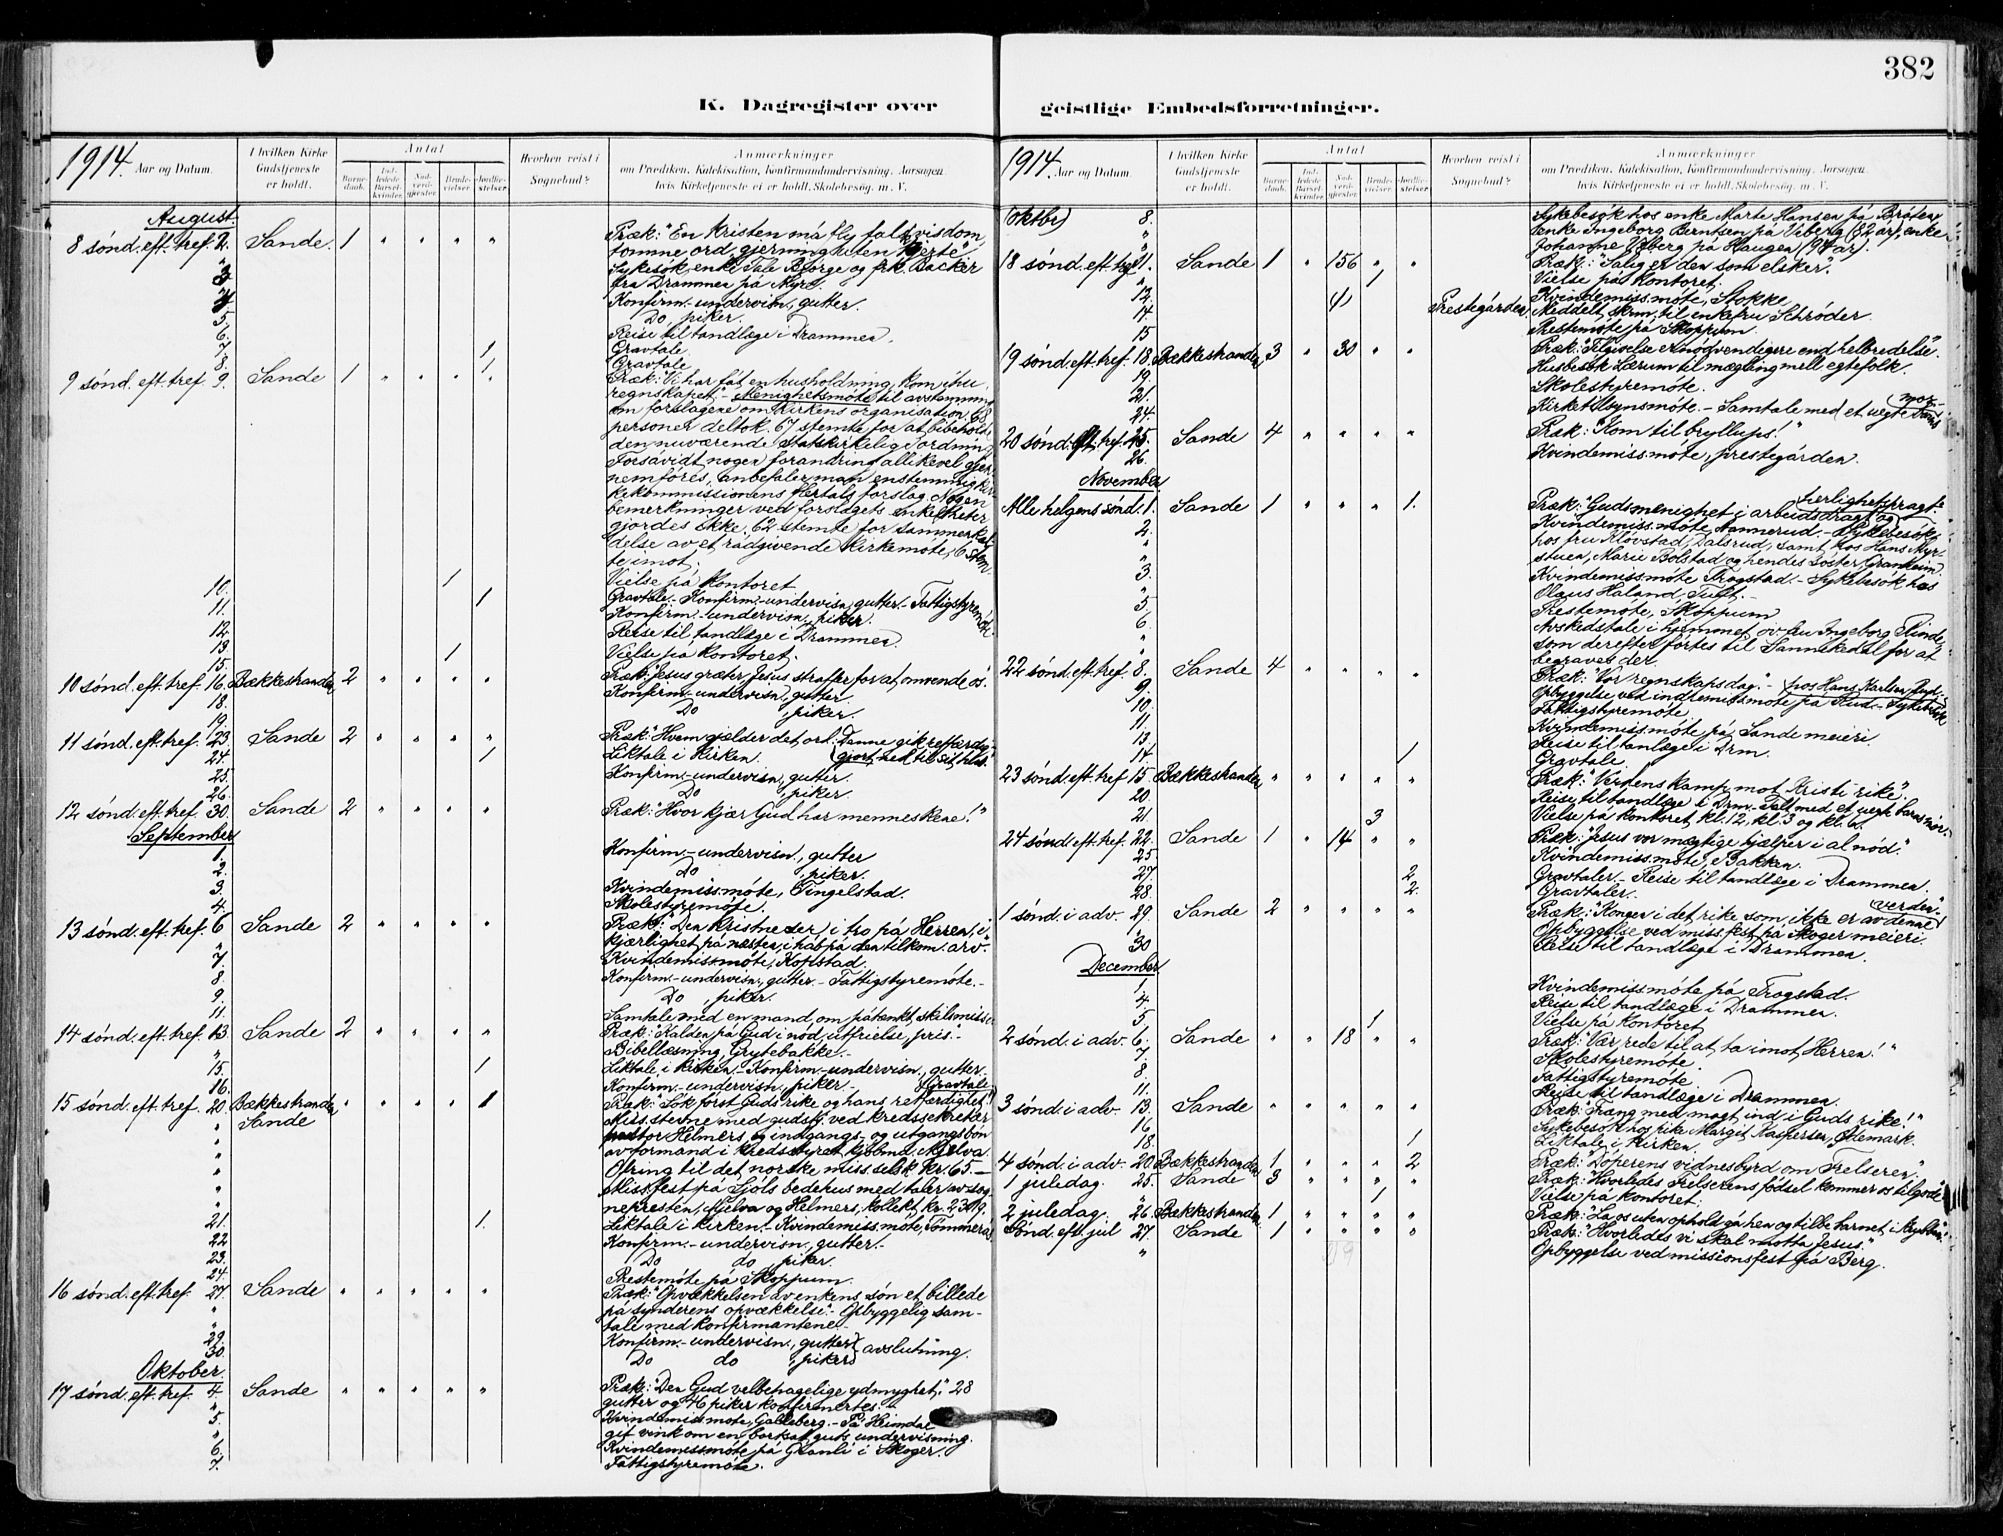 382
K. Dagregister over
1914. Aar og Datum.
I hvilken Kirke Gudstjeneste er holdt.
Antal
Barnedaab.
Indledede Barselkvinder.
Nadverdgjester.
Brudevielser.
Jordfæstelser.
Hvorhen reist i Sognebud?
Anmærkninger
om Prædiken, Katekisation, Konfirmandundervisning. Aarsagen,
hvis Kirketjeneste ei er holdt. Skolebesøg. m. V.
August.
8 sønd. eft. tref. 2. Sande. 1 " " " " Præk: "En kristen må fly falsk visdom,
tomme ord, gjerning uten hjerte"
" Sykesøk enke Tale Bjørge og frk. Backer
3 fra Drammen på Myre.
4 Konfirm.-undervisn., gutter.
5. Do piker.
6. Reise til tandlæge i Drammen.
7. 1 Gravtale
8. 1 Gravtale
9 sønd. eft. tref. 9. Sande 1 " " " " Præk: "Vi har fåt en husholdning, kom ihu
regnskapet." - Menighetsmøte til avstemning
om forslagene om kirkens organisation, 68
personer deltok. 67 stemte for at bibeholde
den nuværende statskirkelige ordning
Forsåvidt nogen forandring allikevel gjen-
nemføres, anbefaler man enstemmig kir-
kekommissionens flertals forslag. Nogen
bemerkninger ved forslagets enkeltheter
gjordes ikke, 62 stemte for sammenkal-
delse av et rådgivende kirkemøte, 6 stem-
te imot.
10. 1 Vielse på kontoret
11. 1 Gravtale. - Konfirm.-undervisn., gutter. - Fattigstyremøte.
12. Konfirm.-undervisn., piker.
13. Reise til tandlæge i Drammen.
15. 1 Vielse på kontoret.
10 sønd. eft. tref. 16. Bækkestranden 2 " " " " Præk: "Jesus græter, Jesus straffer for at omvende os."
18. Konfirm.-undervisn., gutter.
19. Do , piker.
11 sønd. eft. tref. 23. Sande 2 " " " " Præk: "Hvem gjælder det ord: Denne gik retfærdig-
24. 1 Liktale i kirken. (gjort ned til sit hus."
25. Konfirm.-undervisn., gutter.
26. Do , piker
12 sønd. eft. tref. 30. Sande 2 " " " " Præk: "Hvor kjær Gud har menneskene!"
September
1. Konfirm.-undervisn., gutter
2. Do , piker.
3. Kvindemiss.møte, Tingelstad.
4. Skolestyremøte.
13 sønd. eft. tref. 6 Sande 2 " " " " Præk: "Den kristne er i tro på Herren, i
kjærlighet på næsten, i håb på den tilkom. arv."
7. Kvindemiss.møte, Kopstad.
8. Konfirm.-undervisn., gutter. - Fattigstyremøte. -
9. Do , piker.
11. Samtale med en mand om påtænkt skilsmisse.
14 sønd. eft. tref. 13. Sande 2 " " " " Præk: "Kalden på Gud i nød, utfrielse, pris." -
" Bibellæsning, Grytebakke. -
15. 1 Liktale i kirken. - Konfirm.-undervisn., gutter.
16. Konfirm.-undervisn., piker. - Gravtale.
15 sønd. eft. tref. 20. Bækkestranden, " " " " 1 Præk: "Søk først Guds rike og hans retfærdighet!"
" Sande Miss.stevne med gudstj. ved kredssekretær
" pastor Helmers, og indgangs- og utgangsbøn
" av formand i kredsstyret kjøbmd. Mjelva.
" Ofring til det norske miss.selsk. kr. 65. -
" Miss.fest på Sjøls bedehus med taler av sog-
" nepresten, Mjelva og Helmers, kollekt kr. 23.19.
21. 1. Liktale i kirken. - Kvindemiss.møte, Tømmerås
22 Konfirm.-undervisn., gutter. -
23. Do do , piker.
24. Prestemøte på Skoppum.
16 sønd. eft. tref. 27. Sande " " " " " Præk: "Opvækkelsen av enkens søn et billede
" på synderens opvækkelse." - Opbyggelig sam-
" tale med konfirmantene. -
29. Konfirm.-undervisn., gutter
30. Do do , piker) avslutning.
Oktober.
17 sønd. eft. tref. 4. Sande " " " " " Præk: "Den Gud velbehagelige ydmyghet." 28
" gutter og 46 piker konfirmertes. -
5. Kvindemiss.møte, Galleberg. - På Heimdal
" git vink om en bortsat guts undervisning.
6. Kvindemissmøte på Granli i Skoger.
7. Fattigstyremøte.
geistlige Embedsforretninger.
1914 Aar og Datum.
I hvilken Kirke Gudstjeneste er holdt.
Antal
Barnedaab.
Indledede Barselkvinder.
Nadverdgjester.
Brudevielser.
Jordfæstelser.
Hvorhen reist i Sognebud?
Anmærkninger
om Prædiken, Katekisation, Konfirmandundervisning. Aarsagen,
hvis Kirketjeneste ei er holdt. Skolebesøg. m. V.
(Oktbr) 8. Sykebesøk hos enke Marte Hansen på Bråten,
" enke Ingeborg Berntsen på Viberg (82 år), enke
" Johanne Viberg på Haugen (94 år).
18 sønd. eft. tref. 11. Sande 1 " 156 " " Præk.: "Salig er den som elsker".
" 1 Vielse på kontoret.
12. Kvindemiss.møte, Stokke
14. 4 Prestegården, Meddelt skrm. til enkefru Schrøder.
15 Prestemøte på Skoppum.
19 sønd. eft. tref. 18. Bækkestranden 3 " 30 " " Præk: "Tilgivelse er nødvendigere end helbredelse".
19. Husbesøk Lærum til mægling mell. egtefolk.
21. Skolestyremøte.
24. Kirketilsynsmøte. - Samtale med et uegte barns mor.
20 sønd. eft. tref. 25. Sande 4 " " " " Præk: "Kom til bryllups!"
26. Kvindemiss.møte, prestegården.
November
Alle helgens sønd. 1. Sande 1 " " " 1. Præk: "Guds menighet i arbeidsdragt og herlighetsdragt."
2. Kvindemiss.møte, Nannerud. - Sykebesøk
" hos fru Kløvstad, Dalsrud, samt hos Hans Myr-
" stuen, Marie Bolstad og hendes søster Granheim.
3. Kvindemiss.møte Frogstad. - Sykebesøk hos
" Olaus Haland, Tuft. -
5. Prestemøte, Skoppum
6. Avskedstale i hjemmet ov. fru Ingeborg Flinde,
" som derefter førtes til Sannikedal for at
" begraves der.
22 sønd. eft. tref. 8. Sande 4 " " " " Præk: "Vor regnskapsdag." -
9. Opbyggelse ved indremissmøte på Rud. - Sykebesøk hos Hans Karlsen
10. Fattigstyremøte
11. Kvindemiss.møte på Sande meieri.
13. Reise til tanlæge i Drm.
14. 1 Gravtale.
23 sønd. eft. tref. 15. Bækkestranden " " " " " Præk: "Verdens kamp mot Kristi rike".
20. Reise til tandlæge i Drm. - Talt med et uegt. barns mor.
21. 3 Vielse på kontoret kl. 12, kl. 3 og kl. 6.
24 sønd. eft. tref. 22. Sande 1 " 14 " " Præk: "Jesus vor mægtige hjælper i al nød".
25. Kvindemiss.møte, Bakken.
27. 2 Gravtaler. - Reise til tandlæge i Drammen.
28. 2. Gravtaler.
1 sønd. i adv. 29. Sande 2 " " " " Præk: "Kongen i det rike som ikke er av denne verden".
" Opbyggelse ved miss.fest på Skoger meieri.
30 Reise til tandlæge i Drammen.
December
1. Kvindemissmøte på Frogstad.
4. Reise til tandlæge i Drammen.
5 1 Vielse på kontoret
2 sønd. i adv. 6. Sande " " 18 " " Præk: "Vær rede til at ta imot Herren!"
7. Skolestyremøte.
8. Fattigstyremøte.
11. Reise til tandlæge i Drammen.
3 sønd. i adv. 13. Sande " " " " " Præk: "Træng med magt ind i Guds rike!"
16. Sykebesøk hos pike Margit Kaspersen, Ødemark.
18. 1 Liktale i kirken.
4 sønd. i adv. 20. Bækkestranden 1 " " " 2 Præk: "Døperens vidnesbyrd om Frelseren"
1 juledag. 25. Sande 3 " " " " Præk: "Hvorledes Frelserens fødsel kommer os tilgode"
" 1 Vielse på kontoret.
2 juledag. 26. Bækkestranden 1 " " " " Præk: "La os uten ophold gå hen og tilbe barnet i krybben".
Sønd. eft. jul 27. Sande 1 " " " " Præk: "Hvorledes vi skal motta Jesus."
" Opbyggelse ved missionsfest på Berg.